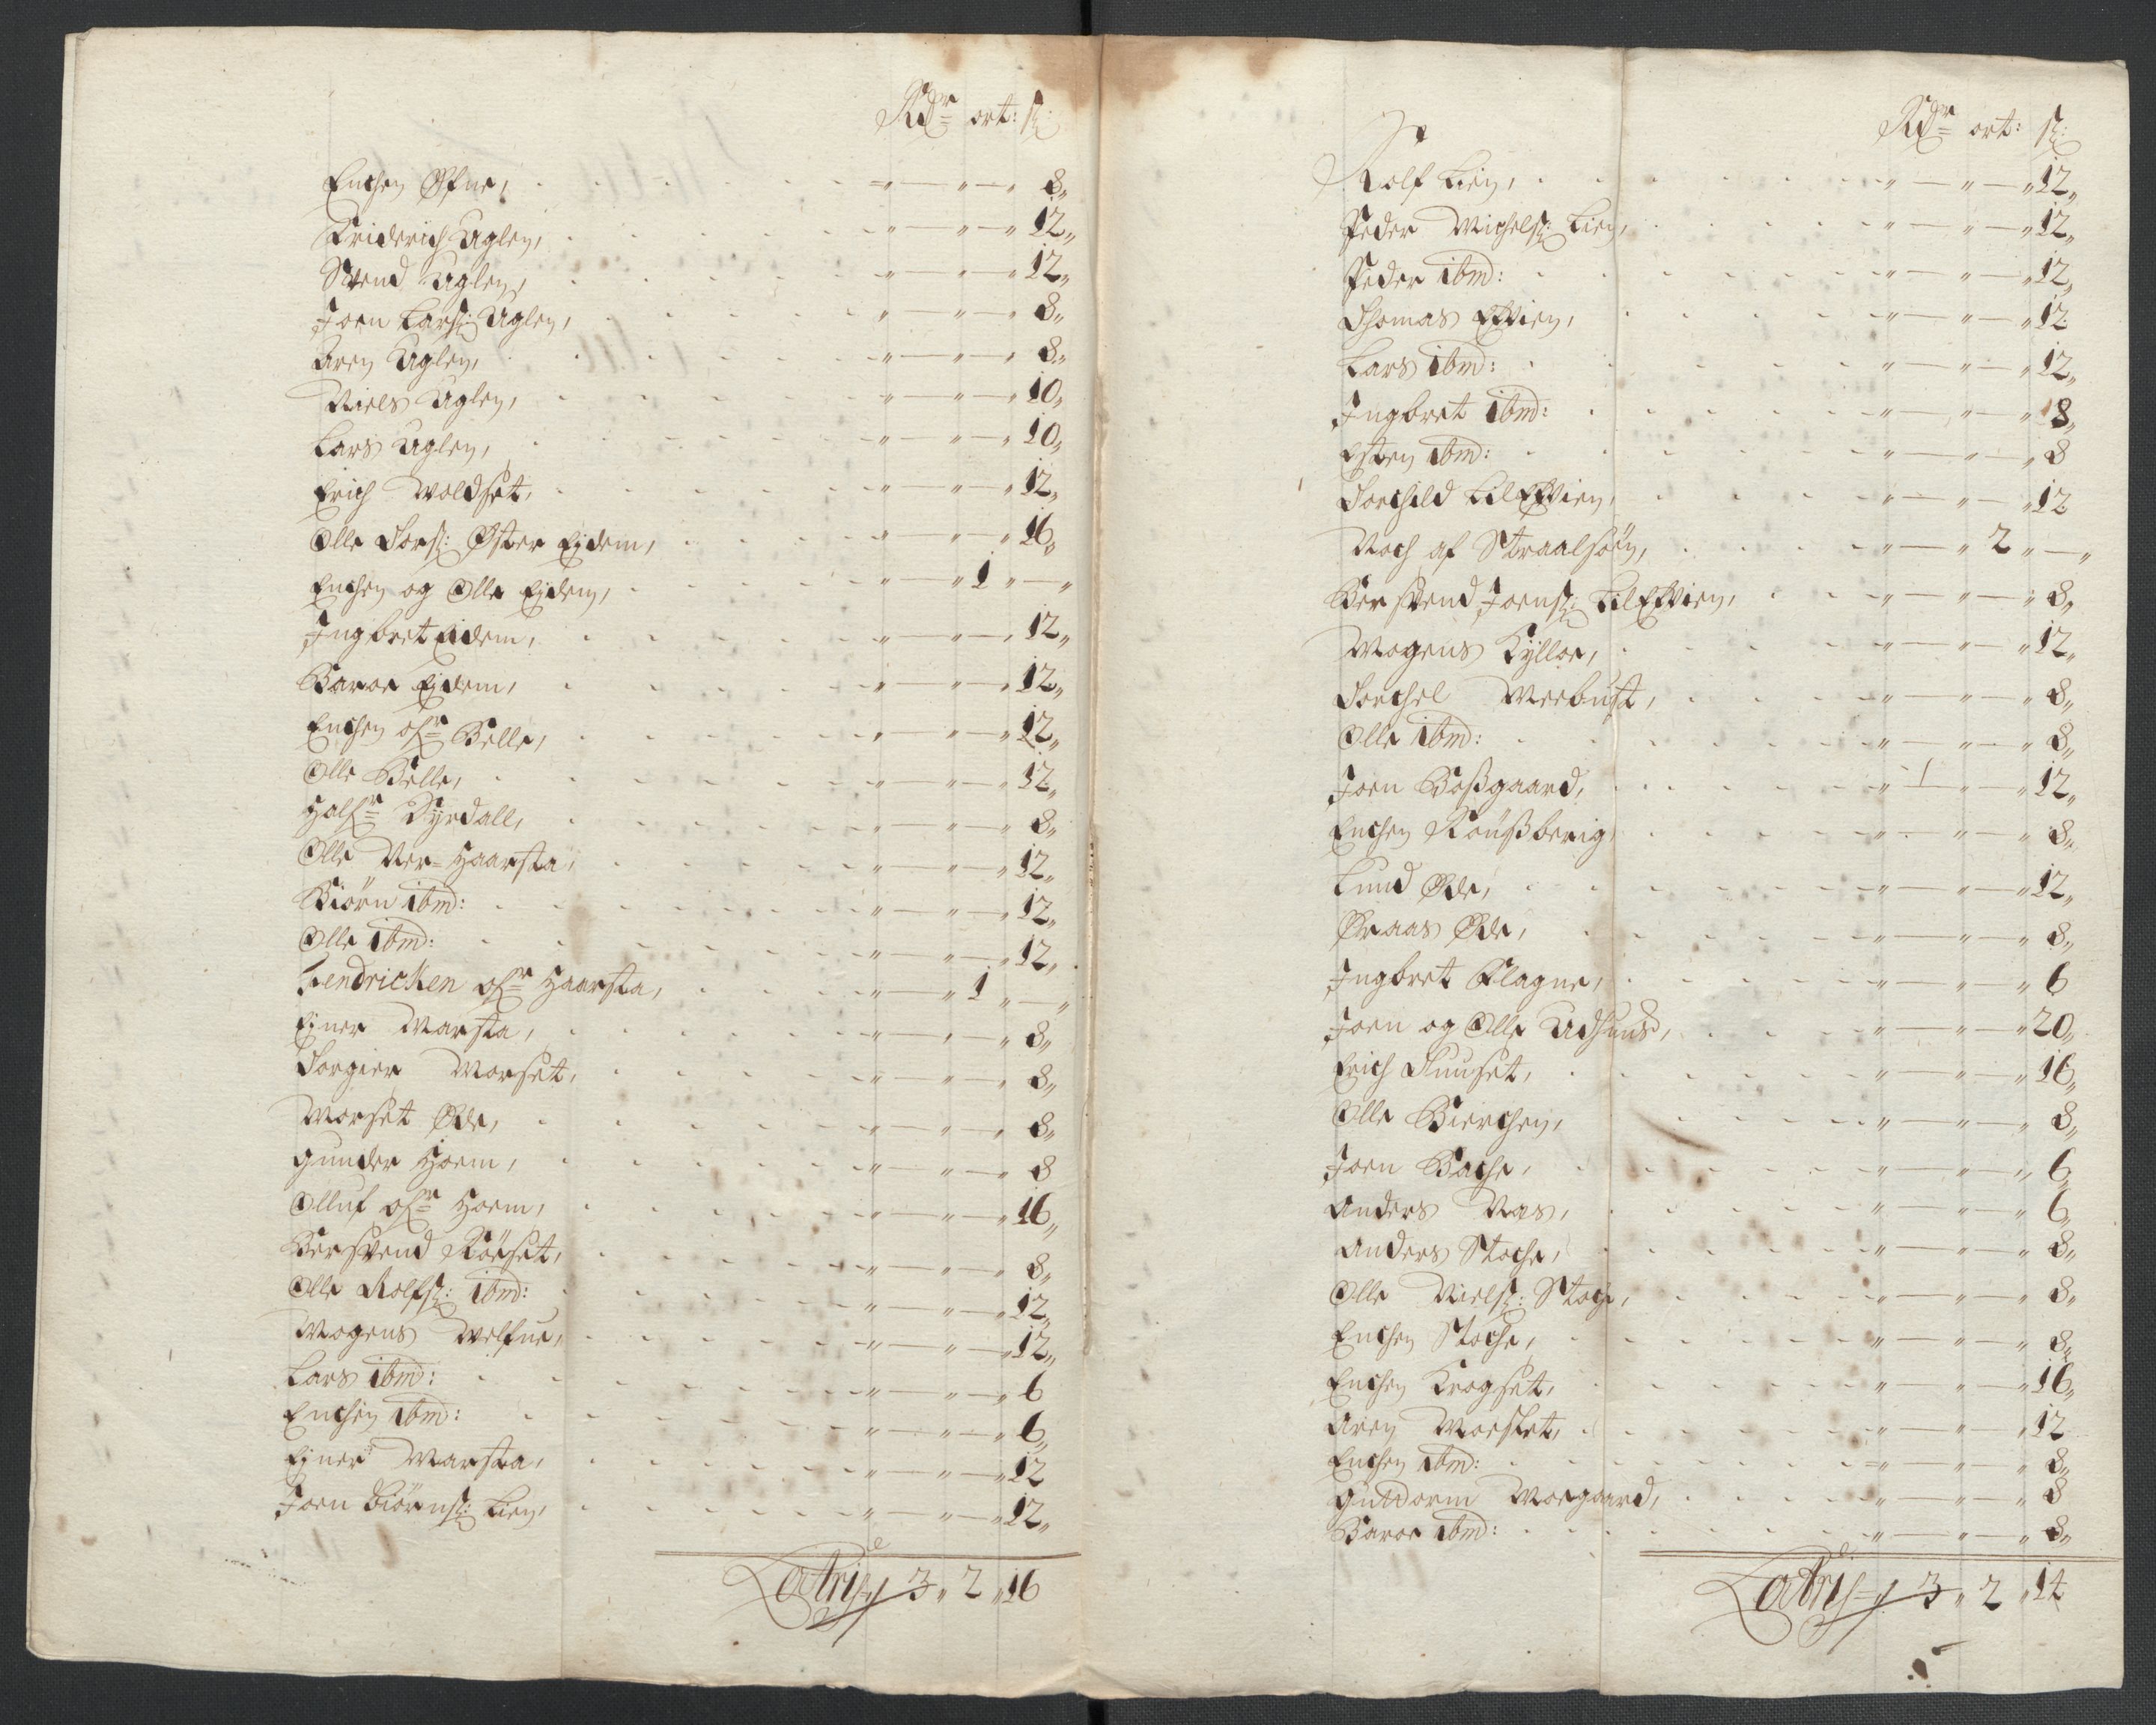 Rdr ort: s:
Enchen Øfne, " — " — " 8"
Friderich Uglen, " — " — " 12"
Svend Uglen, " — " — " 12"
Joen Lars: Uglen, " — " — " 8"
Aren Uglen, " — " — " 8"
Niels Uglen, " — " — " 10"
Lars Uglen, " — " — " 10"
Erich Woldset, " — " — " 12"
Olle Tors: Øster Eidem, " — " — " 16"
Enchen og Olle Eidem, " — " 1 " — "
Ingbret Eidem, " — " — " 12"
Baroe Eidem, " — " — " 12"
Enchen ofr Belle, " — " — " 12"
Olle Belle, " — " — " 12"
Halfr Dyrdall, " — " — " 8"
Olle Ner-Haarsta, " — " — " 12"
Biörn ibm: " — " — " 12"
Olle ibm: " — " — " 12"
Hendrichen ofr Haarsta, " — " 1 " — "
Einer Marsta, " — " — " 8"
Torgier Morset, " — " — " 8"
Morset Øde, " — " — " 8"
Gunder Hoem, " — " — " 8
Olluf ofr Hoem, " — " — " 16"
Bersvend Röeset, " — " — " 8"
Olle Rolfs: ibm: " — " — " 12"
Mogens Welfue, " — " — " 12"
Lars ibm: " — " — " 6
Enchen ibm: " — " — " 6"
Einer Marsta, " — " — " 12
Joen Biörns: Lien, " — " — " 12"
Latris 3 " 2 " 16
Rdr ort: s:
Rolf Lien, " — " — " 12"
Peder Michels: Lien, " — " — " 12"
Peder ibm: " — " — " 12"
Thomas Efvien, " — " — " 12
Lars ibm: " — " — " 12"
Ingbret ibm: " — " — " 8"
Esten ibm: " — " — " 8
Torchild LilEfvien, " — " — " 12
Noch af Straalsöen, " — " 2 " — "
Bersvend Joens: LilEfvien, " — " — " 8"
Mogens Kylloe, " — " — " 12"
Torchel Meebust, " — " — " 8"
Olle ibm: " — " — " 8"
Joen Bossgaard, " 1 " — " 12"
Enchen Roussberig, " — " — " 8"
Lund Øde, " — " — " 12"
Øraas Øde, " — " — " 8"
Ingbret Flagne, " — " — " 6
Joen og Olle Udhuus, " — " — " 20"
Erich Tuuset, " — " — " 16"
Olle Bierchen, " — " — " 8"
Joen Bache, " — " — " 6"
Anders Nas, " — " — " 6"
Anders Stoche, " — " — " 8"
Olle Niels: Stoche, " — " — " 8"
Enchen Stoche, " — " — " 8"
Enchen Krogset, " — " — " 16"
Aren Moeslet, " — " — " 12
Enchen ibm: " — " — " 8"
Guttorm Moegaard, " — " — " 8
Baroe ibm: " — " — " 8"
Latris 3 " 2 " 14